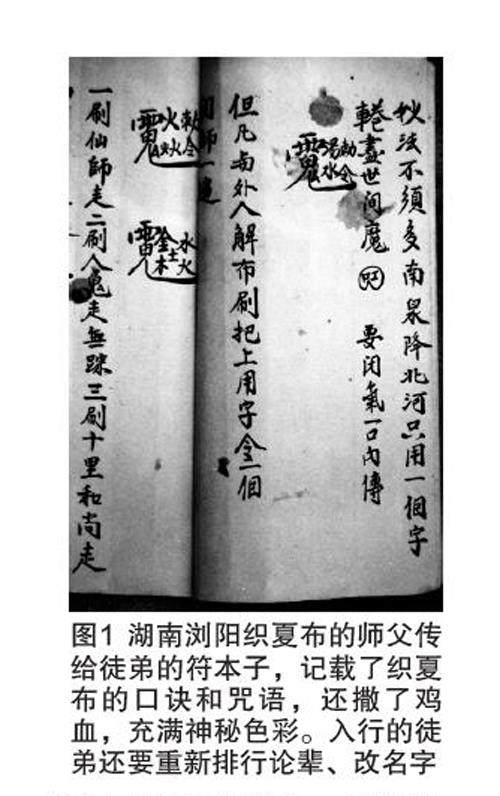 妙法不須多南泉降北河只用一個字
盡世间魔 要闭氣一口内傳
勅令
但凡与外人解布刷把上用字令一個
勅令
水火土金木
一刷仙師走二刷人鬼走無踪三刷十里和尚走
图1 湖南浏阳织夏布的师父传
给徒弟的符本子，记载了织夏
布的口诀和咒语，还撒了鸡
血，充满神秘色彩。入行的徒
弟还要重新排行论辈、改名字